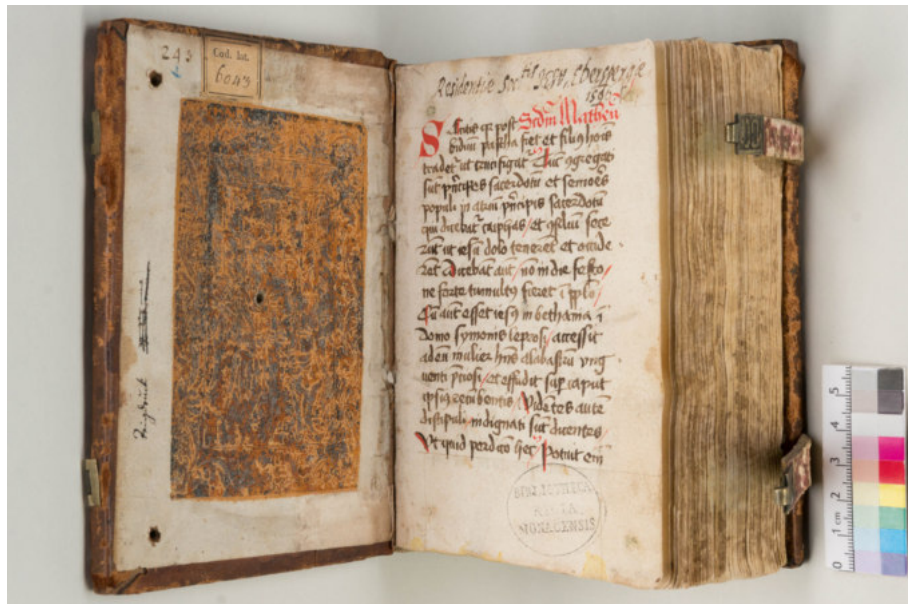 243
Cod. lat.
6043
Residentiæ Soctis Jesu, Ebersbergæ
1596
Scdm Matheū
Scitis qꝛ post
biduū pascha fiet et filiꝰ hoīs
tradetᷣ ut crucifigatᷣ Tūc ꝯgregati
sūt pⁱncipes sacerdotū et seniores
populi in atriū pⁱncipis sacerdotū
qui dicebatᷣ cayphas / et ꝯsiliū fece
rūt ut iesū dolo tenerēt et occide
rēt Dicebāt aūt / nō in die festo
ne forte tumultꝰ fieret ī pplo /
Cū aūt esset iesꝰ in bethania ī
domo symonis leprosi / accessit
ad eū mulier hñs alabastrū vng
uenti p̄ciosi / et effudit suꝑ caput
ipsiꝰ recūbentis / Videntes autē
discipuli / indignati sūt dicentes /
Vt quid perdicō hec Potuit em̄
BIBLIOTHECA
REGIA
MONACENSIS
0 1 cm 2 3 4 5